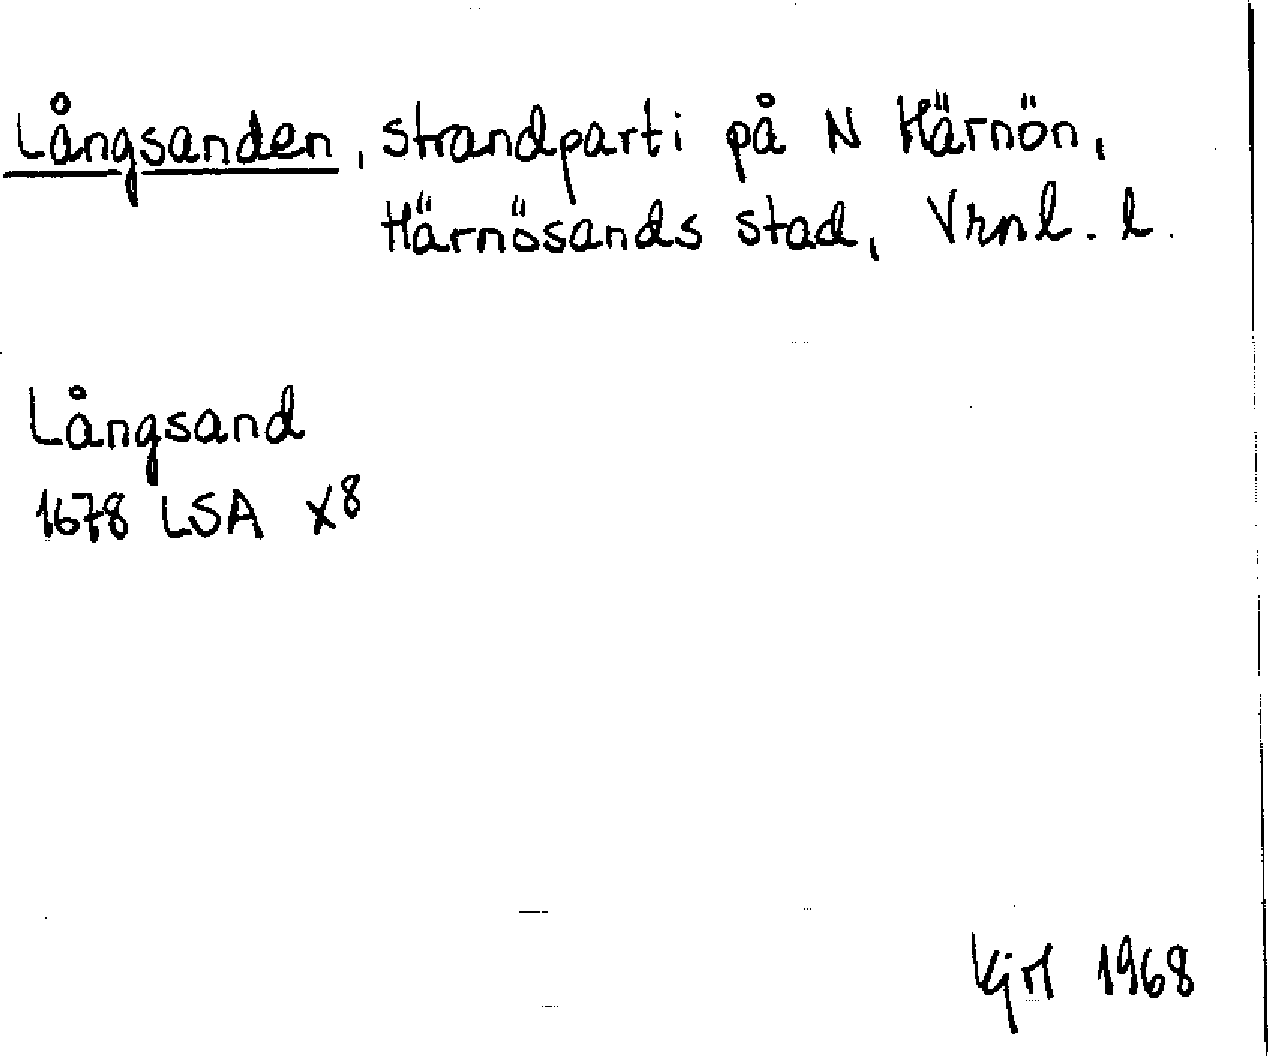 Långsanden, strandparti på N Härnön,
Härnösands stad, Vrnl. l.
Långsand
1678 LSA X8
1968